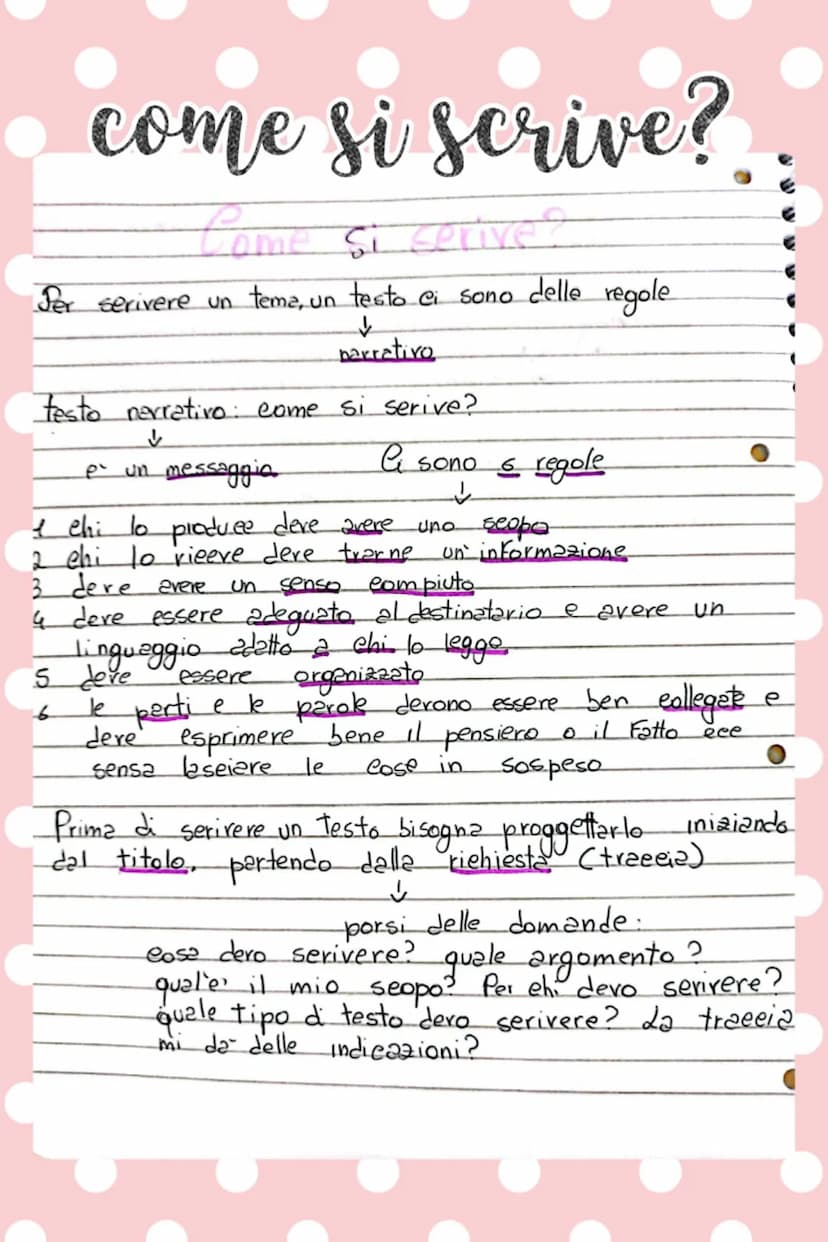 come si scrive?
Come si scrive?
Per scrivere un tema, un testo ci sono delle regole
↓
narrativo
testo narrativo: come si scrive?
↓
e' un messaggio Ci sono 6 regole
↓
1 chi lo produce deve avere uno scopo
2 chi lo riceve deve trarne un' informazione
3 deve avere un senso compiuto
4 deve essere adeguato al destinatario e avere un
linguaggio adatto a chi lo legge
5 deve essere organizzato
6 le parti e le parole devono essere ben collegate e
deve esprimere bene il pensiero o il fatto ecc
sensa lasciare le cose in sospeso
Prima di scrivere un testo bisogna proggettarlo iniziando
dal titolo, partendo dalla richiesta (traccia)
↓
porsi delle domande:
cosa devo scrivere? quale argomento?
qual'e' il mio scopo? Per chi devo scrivere?
quale tipo di testo devo scrivere? La traccia
mi da' delle indicazioni?